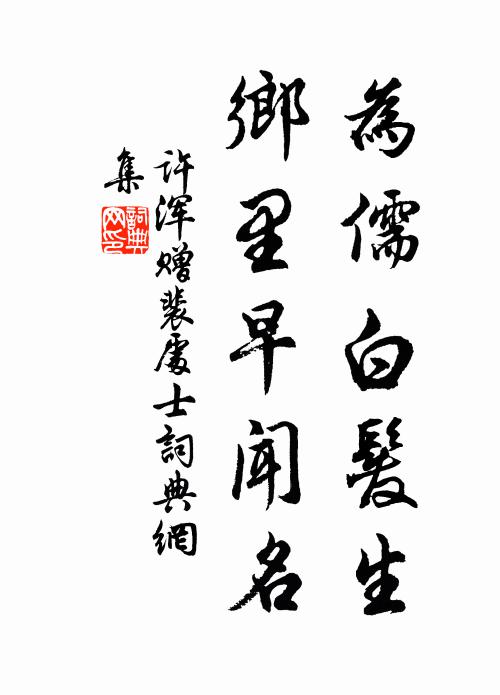 為儒白髮生
鄉里早聞名
許渾贈裴處士詞典網
集
詞典
网印